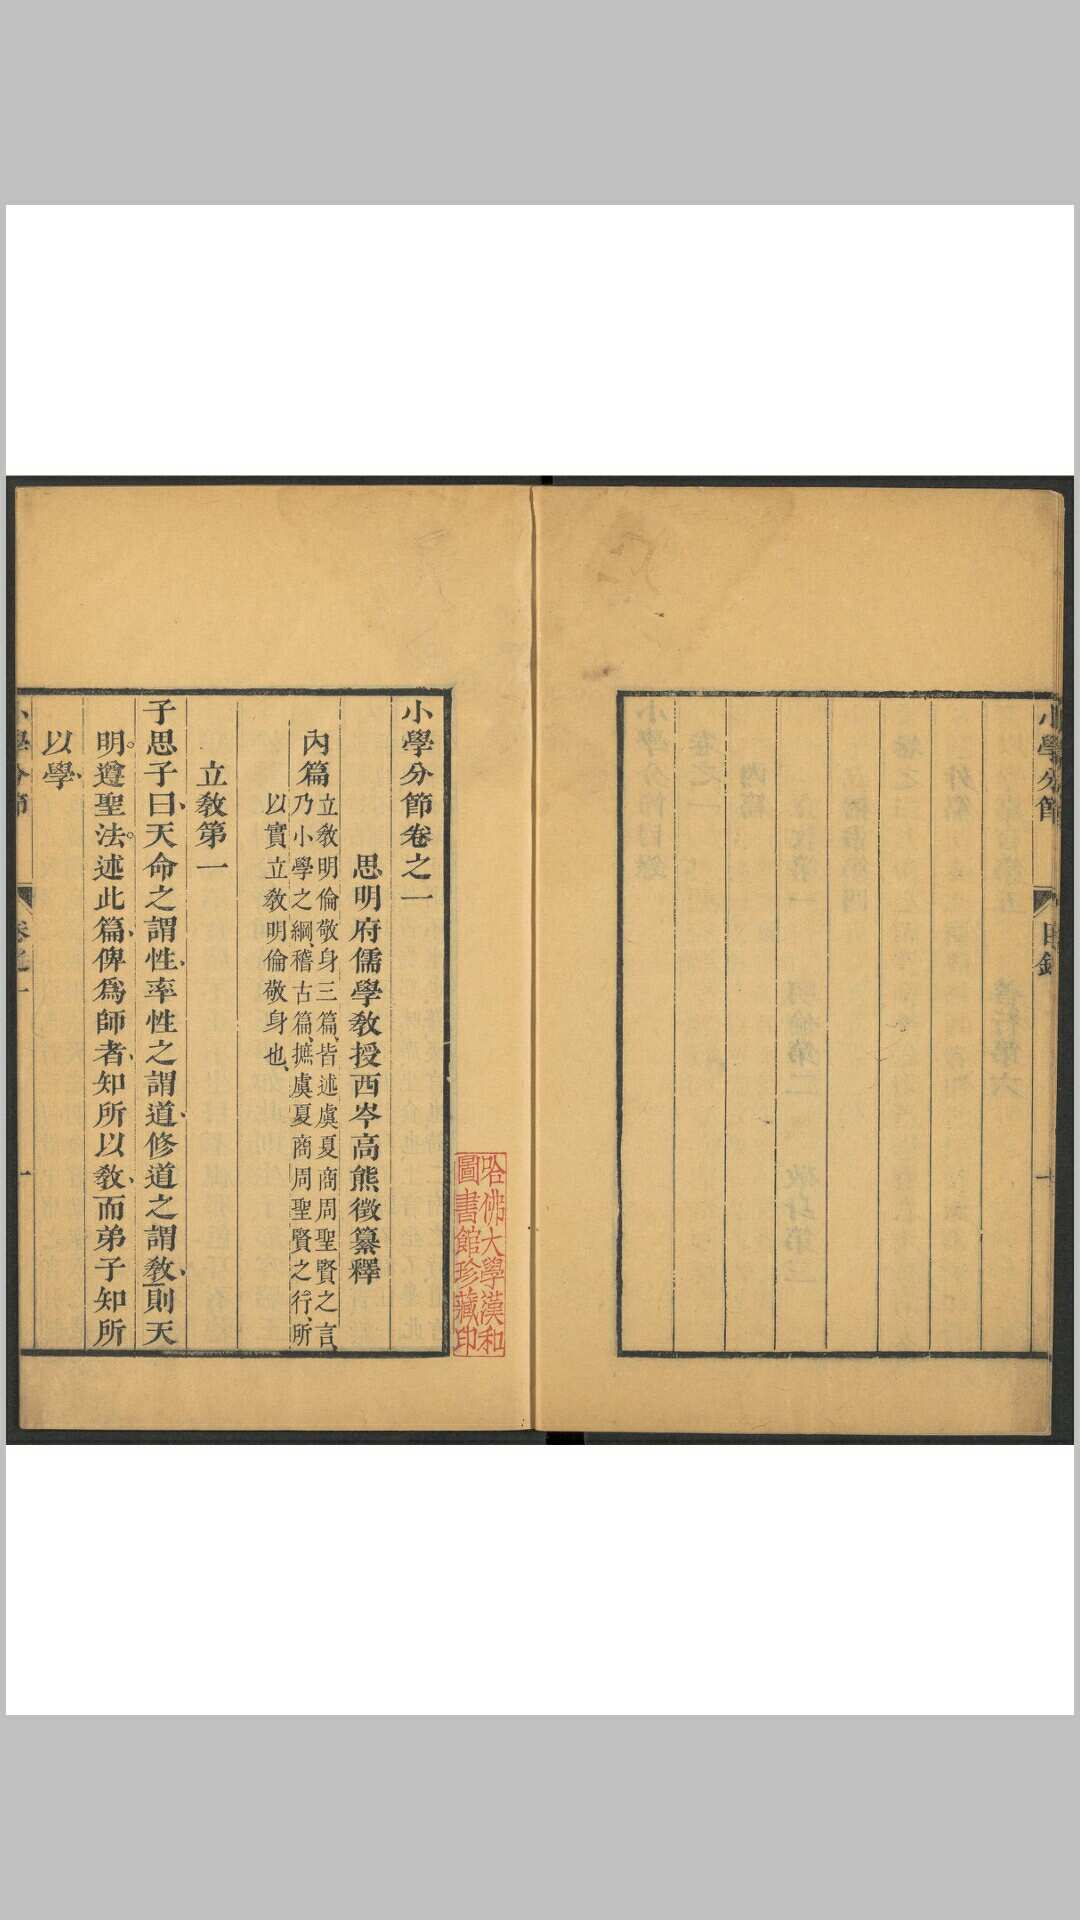 小學分節 目錄
哈佛大學漢和
圖書館珍藏印
小學分節卷之一
思明府儒學教授西岑高熊徵纂釋
內篇 立教明倫敬身三篇、皆述虞夏商周聖賢之言、
乃小學之綱、稽古篇、摭虞夏商周聖賢之行、所
以實立教明倫敬身也、
立教第一
子思子曰、天命之謂性、率性之謂道、修道之謂教、則天
明。遵聖法。述此篇、俾爲師者、知所以教、而弟子知所
以學、
小學分節 卷之一 一